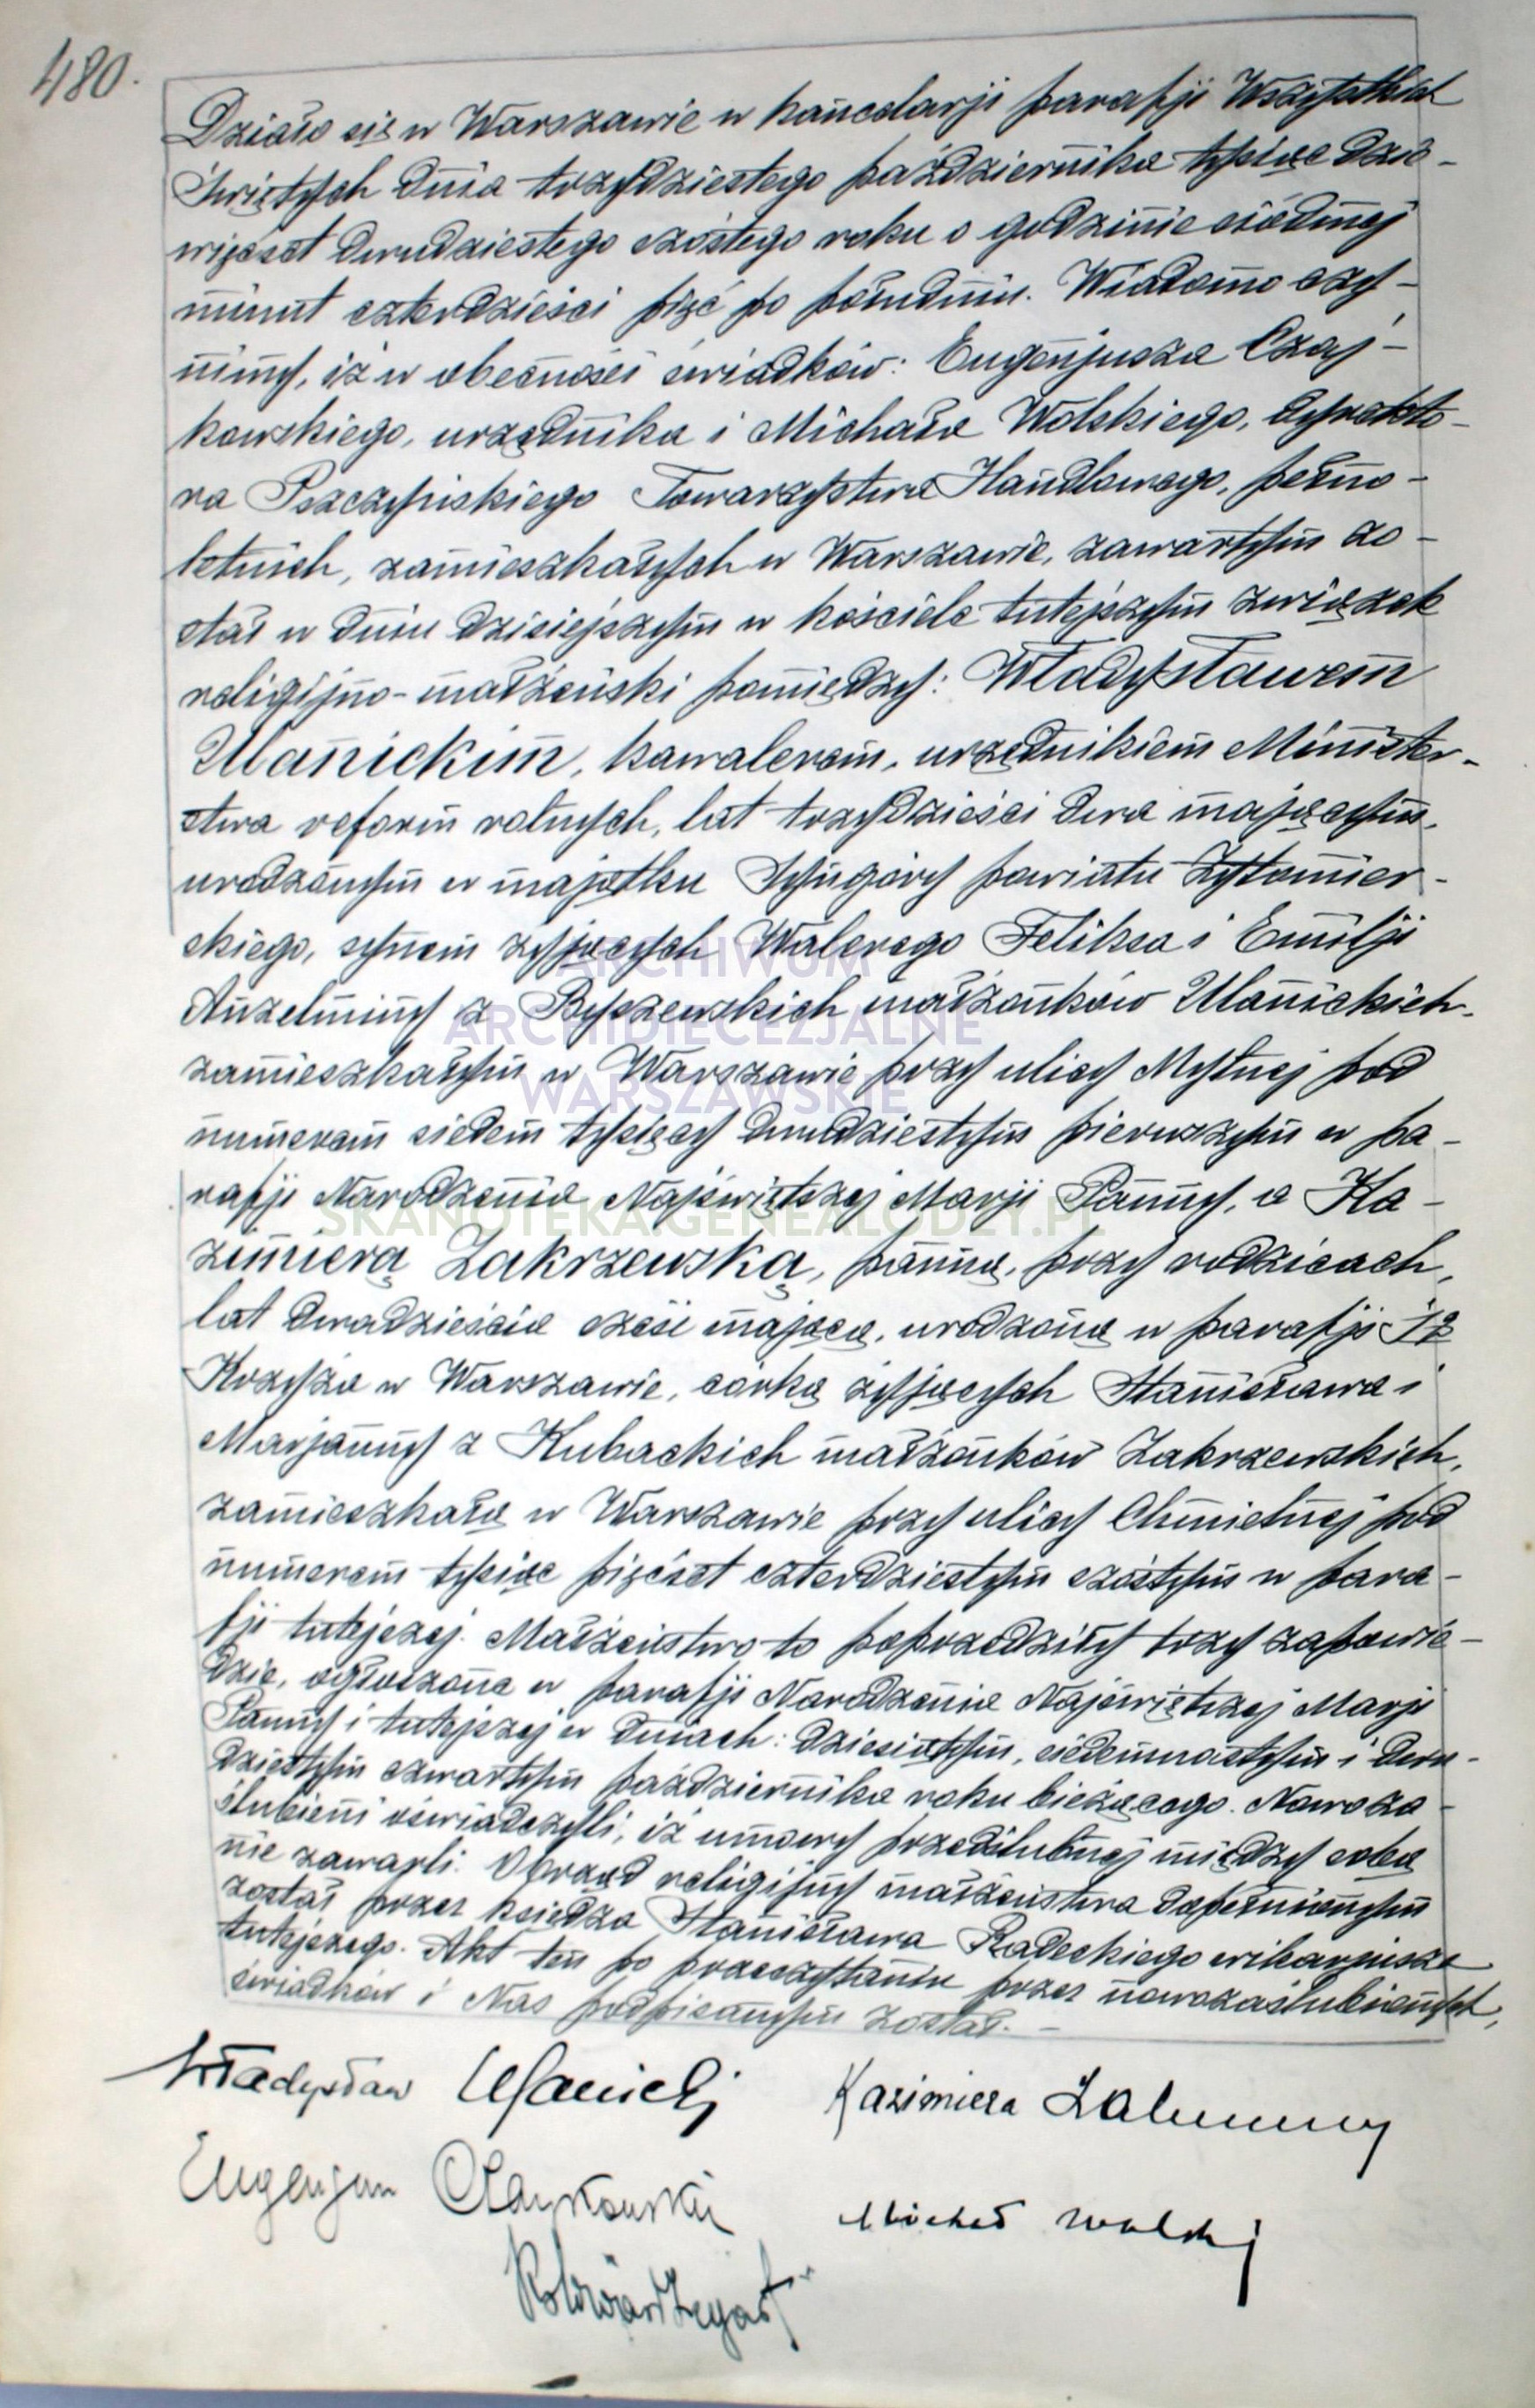 480.
Działo się w Warszawie w kancelarji parafji Wszystkich
Świętych dnia trzydziestego października tysiąc dzie-
więćset dwudziestego szóstego roku o godzinie siódmej
minut czterdzieści pięć po południu. Wiadomo czy-
nimy, iż w obecności świadków: Eugenjusza Czaj-
kowskiego, urzędnika i Michała Wolskiego, dyrekto-
ra Pszczyńskiego Towarzystwa Handlowego, pełno-
letnich, zamieszkałych w Warszawie, zawartym zo-
stał w dniu dzisiejszym w kościele tutejszym związek
religijno-małżeński pomiędzy: Władysławem
Ulanickim, kawalerem, urzędnikiem Minister-
stwa reform rolnych, lat trzydzieści dwa mającym,
urodzonym w majątku Syngóry powiatu Żytomier-
skiego, synem żyjących Walerego Feliksa i Emilji
Anzelminy z Byszewskich małżonków Ulanickich,
zamieszkałym w Warszawie przy ulicy Mylnej pod
numerem siedem tysięcy dwudziestym pierwszym w pa-
rafji Narodzenia Najświętszej Marji Panny, a Ka-
zimierą Zakrzewską, panną, przy rodzicach,
lat dwadzieścia sześć mającą, urodzoną w parafji Śg
Krzyża w Warszawie, córką żyjących Stanisława i
Marjanny z Kubackich małżonków Zakrzewskich,
zamieszkałą w Warszawie przy ulicy Chmielnej pod
numerem tysiąc pięćset czterdziestym szóstym w para-
fji tutejszej. Małżeństwo to poprzedziły trzy zapowie-
dzie, ogłoszone w parafji Narodzenia Najświętszej Marji
Panny i tutejszej w dniach: dziesiątym, siedemnastym i dwu-
dziestym czwartym października roku bieżącego. Nowoza-
ślubieni oświadczyli, iż umowy przedślubnej między sobą
nie zawarli. Obrząd religijny małżeństwa dopełnionym
został przez księdza Stanisława Radeckiego wikarjusza
tutejszego. Akt ten po przeczytaniu przez nowozaślubionych,
świadków i Nas podpisanym został.-
Władysław Ulanicki Kazimiera
Eugenjusz Czajkowski Michał Wolski
ARCHIWUM
ARCHIDIECEZJALNE
WARSZAWSKIE
SKANOTEKA.GENEALODZY.PL